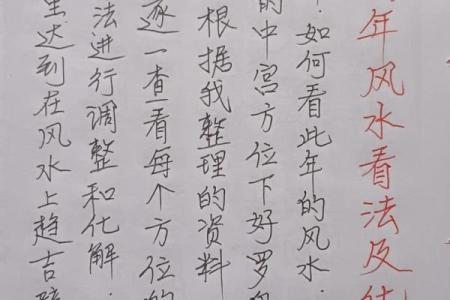 年风水看法及
！如何看此年的风水．
的中宫方位下好罗
根据我整理的资料
逐一查看每个方位的
法进行调整和化解．
达到在风水上趋吉